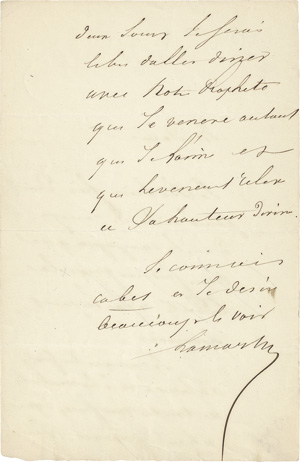 deux jours je serai
libre d'aller diner
avec notre prophète
que je venere autant
que je l'aime et
que
a sa hauteur divin.
Je connais
cabet et je desire
beaucoup le voir
Lamartine